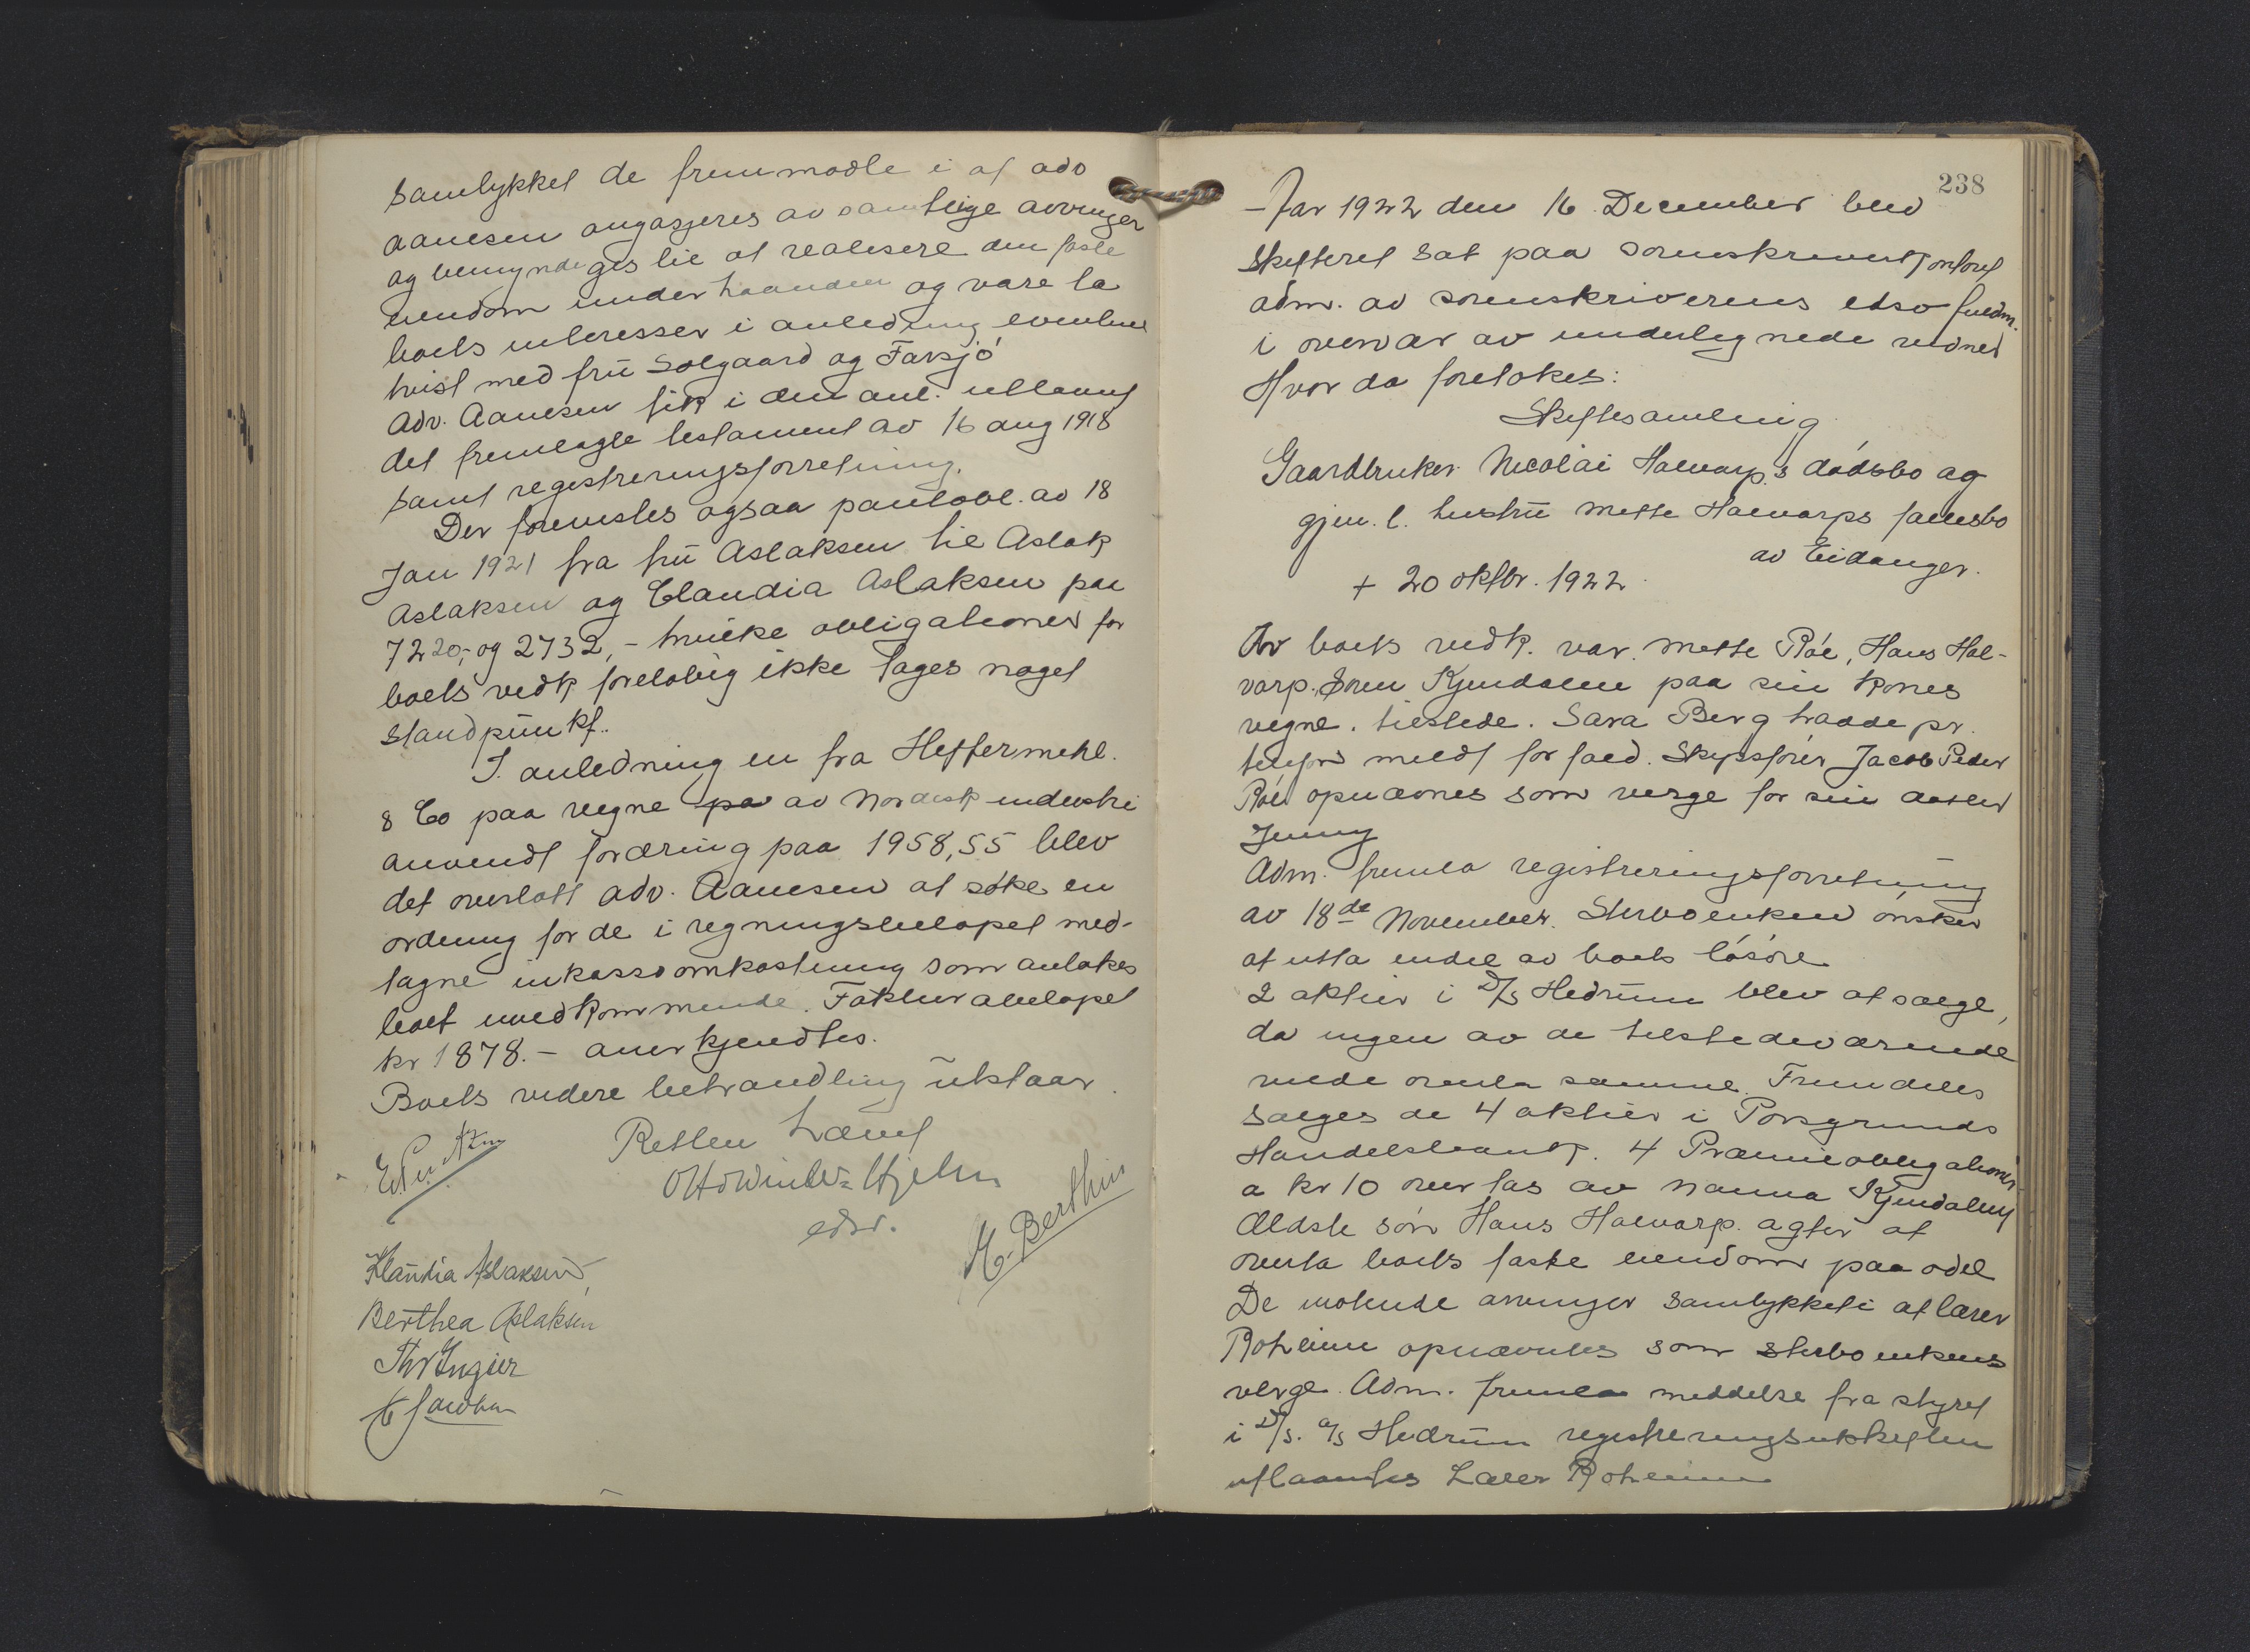 samtykket de fremmødte i at adv
Aanesen angasjeres av samtlige arvinger
og bemyndiges til at realisere den faste
eiendom underhaanden og vare ta
boets interesser i anledning eventuel
tvist med fru Solgaard og Farsjø
Adv. Aanesen fik i den anl. utlaant
det fremlagte testament av 16 aug 1918
samt registreringsforretning.
Der forevistes ogsaa pantobl. av 18
Jan 1921 fra fru Aslaksen til Aslak
Aslaksen og Claudia Aslaksen paa
7220,- og 2732,- hvilke obligationer for
boets vedk foreløbig ikke tages noget
standpunkt.
I anledning en fra Heffermehl
& Co paa vegne pa av Nordisk industri
anvendt fordring paa 1958,55 blev
det overlatt adv. Aanesen at søke en
ordning for de i regningsbeløpet med-
tagne inkassoomkostning som antokes
boet uvedkommende. Fakturabeløpet
kr 1878.- anerkjendtes.
Boets videre behandling utstaar.
Retten hævet
Otto Winter-Hjelm
edsv.
M. Berthin
Klaudia Aslaksen
Berthea Aslaksen
Thv Ingier
238
Aar 1922 den 16 December blev
Skifteret sat paa sorenskriverkontoret
adm. av sorenskriverens edsv fuldm.
i overvær av undertegnede vidner
Hvor da foretokes:
Skiftesamling
Gaardbruker Nicolai Halvarp's dødsbo og
gjen. l. hustru Mette Halvarps fællesbo
av Eidanger.
+ 20 oktbr. 1922
For boets vedk. var Mette Róe, Hans Hal-
varp. Søren Kjendalen paa sin kones
vegne. tilstede. Sara Berg hadde pr.
telefon meldt forfald. Skipsfører Jacob Peder
Róe opnævnes som verge for sin datter
Jenny
Adm. fremla registreringsforretning
av 18de November. Sterboenken ønsker
at utta endel av boets løsøre
2 aktier i D/S Hedrum blev at sælge,
da ingen av de tilstedeværende
vilde overta samme. Fremdeles
sælges de 4 aktier i Porsgrunds
Handelsbank. 4 Præmieobligationer
a kr 10 overtas av Nanna Kjendalen
Ældste søn Hans Halvarp. agter at
overta boets faste eiendom paa odel
De møtende arvinger samtykket i at lærer
Rotheim opnævntes som sterboenkens
verge. Adm. fremla meddelse fra styret
i D/S. a/s Hedrum registreringsutskriften
utlaantes Lærer Rotheim